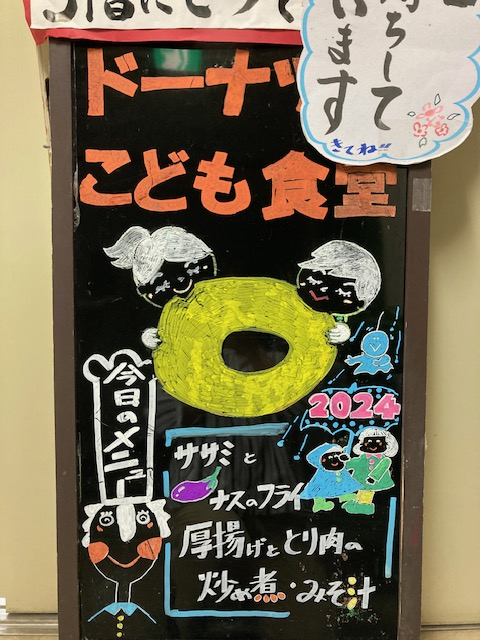 ちして
います
きてね!!
ドーナツ
こども食堂
今日のメニュー
2024
ササミと
ナスのフライ
厚揚げととり肉の
炒め煮・みそ汁